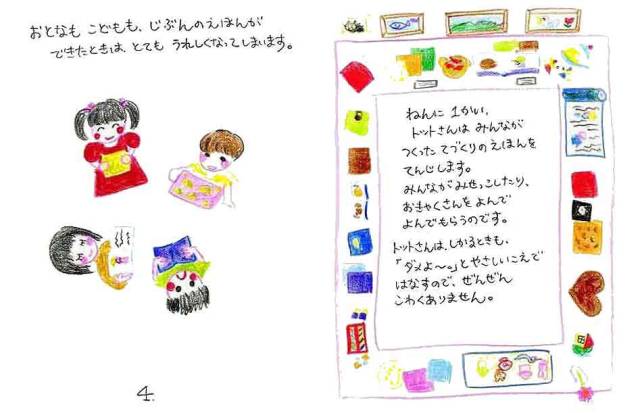 おとなも こどもも、じぶんのえほんが
できたときは、とても うれしくなってしまいます。
4.
ねんに 1かい、
トットさんは みんなが
つくった てづくりのえほんを
てんじします。
みんながみせっこしたり、
おきゃくさんを よんで
よんでもらうのです。
トットさんは、しかるときも、
「ダメよ〜。」とやさしいこえで
はなすので、ぜんぜん
こわくありません。